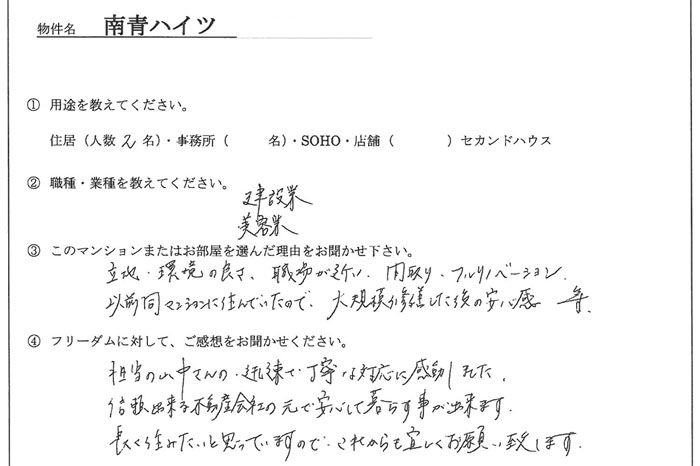 物件名 南青ハイツ
① 用途を教えてください。
住居（人数 2 名）・事務所（ 名）・SOHO・店舗（ ）セカンドハウス
② 職種・業種を教えてください。
建設業
美容業
③ このマンションまたはお部屋を選んだ理由をお聞かせ下さい。
立地・環境の良さ、職場が近い、間取り・フルリノベーション、
以前同マンションに住んでいたので、大規模修繕した後の安心感 等。
④ フリーダムに対して、ご感想をお聞かせください。
担当の山中さんの、迅速で丁寧な対応に感動しました。
信頼出来る不動産会社の元で安心して暮らす事が出来ます。
長く住みたいと思っていますので、これからも宜しくお願い致します。